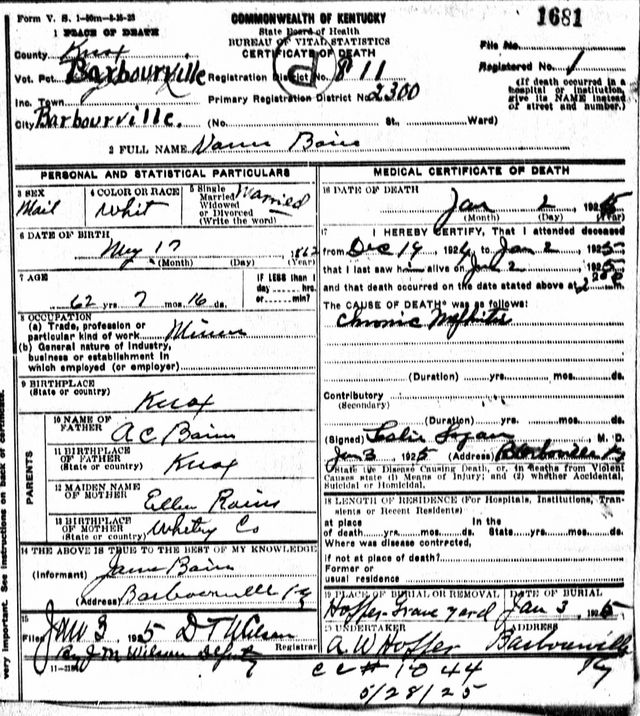 Form V. S. 1-50m-8-25-23
COMMONWEALTH OF KENTUCKY
1681
1 PLACE OF DEATH
State Board of Health
BUREAU OF VITAL STATISTICS
CERTIFICATE OF DEATH
File No.
County Knox
Vot. Pct. Barbourville Registration District No. 811
Registered No. 1
(If death occurred in a hospital or institution, give its NAME instead of street and number.)
Inc. Town
Primary Registration District No. 2300
City Barbourville. (No. St., Ward)
2 FULL NAME
PERSONAL AND STATISTICAL PARTICULARS
3 SEX
Mail
4 COLOR OR RACE
Whit
5 Single
Married
Widowed
or Divorced
(Write the word)
Married
6 DATE OF BIRTH
May 17 1862
(Month) (Day) (Year)
7 AGE
62 yrs. 7 mos. 16 ds.
IF LESS than 1
day hrs.
or min?
8 OCCUPATION
(a) Trade, profession or
particular kind of work Miner
(b) General nature of industry,
business or establishment in
which employed (or employer)
9 BIRTHPLACE
(State or country)
Knox
PARENTS
10 NAME OF
FATHER
A C Bain
11 BIRTHPLACE
OF FATHER
(State or country)
Knox
12 MAIDEN NAME
OF MOTHER
Ellen Rains
13 BIRTHPLACE
OF MOTHER
(State or country)
Whitly Co
14 THE ABOVE IS TRUE TO THE BEST OF MY KNOWLEDGE
(Informant)
(Address) Barbourville Ky
15
Filed Jan 3 1925 D T Wilson
Registrar
By J M Wilson Deputy
11-3184
MEDICAL CERTIFICATE OF DEATH
16 DATE OF DEATH
Jan 2 1925
(Month) (Day) (Year)
17 I HEREBY CERTIFY, That I attended deceased
from Dec 19 1924, to Jan 2 1925
that I last saw h alive on Jan 2 1925
and that death occurred on the date stated above at
The CAUSE OF DEATH* was as follows:
Chronic Nephritis
(Duration) yrs. mos. ds.
Contributory
(Secondary)
(Duration) yrs. mos. ds.
(Signed) Leslie Logan M. D.
Jan 3 1925 (Address) Barbourville Ky
*State the Disease Causing Death, or, in deaths from Violent
Causes state (1) Means of Injury; and (2) whether Accidental,
Suicidal or Homicidal.
18 LENGTH OF RESIDENCE (For Hospitals, Institutions, Tran-
sients or Recent Residents)
at place In the
of death yrs. mos. ds. State yrs. mos. ds.
Where was disease contrected,
if not at place of death?
Former or
usual residence
19 PLACE OF BURIAL OR REMOVAL
Hopper Grave yard
DATE OF BURIAL
Jan 3 1925
20 UNDERTAKER
A W Hopper
ADDRESS
Barbourville
Ky
cc# 1044
5/28/25
very important. See instructions on back of certificate.